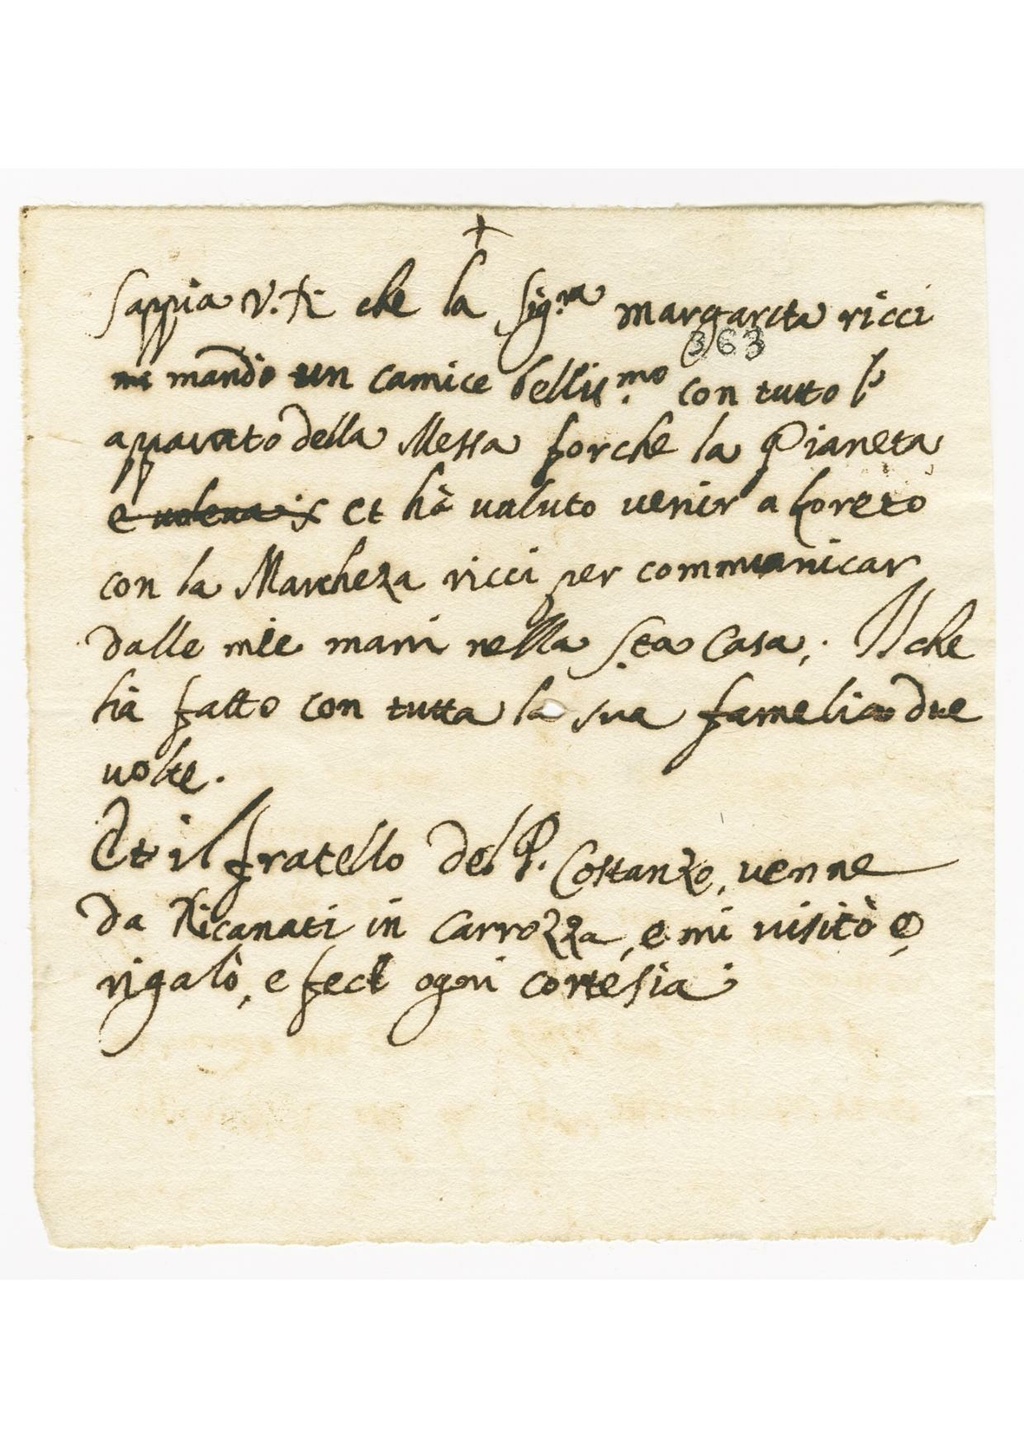 +
Sappia V. R. che la Sig.ra margarita ricci
363
mi mandò un camice belliss.mo con tutto l'
apparato della Messa forche la Pianeta
e voleva et hà voluto venir a Loreto
con la Marcheza ricci per communicar
dalle mie mani nella S.ta Casa; Il che
hà fatto con tutta la sua famelia due
volte.
Et il fratello del P. Costanzo, venne
da Ricanati in Carrozza, e mi visitò e
rigalò, e fece ogni cortesia